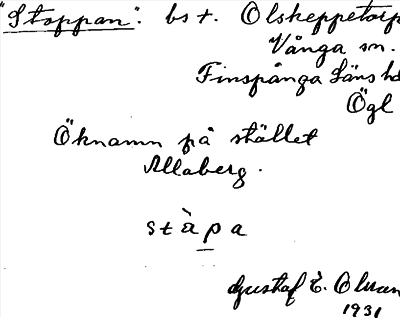 "Stoppan". bs t. Olskeppetorp
Vånga sn.
Finspånga läns hd
Ögl
Öknamn på stället
Allaberg.
stàpa
Gustaf E. Olsson
1931